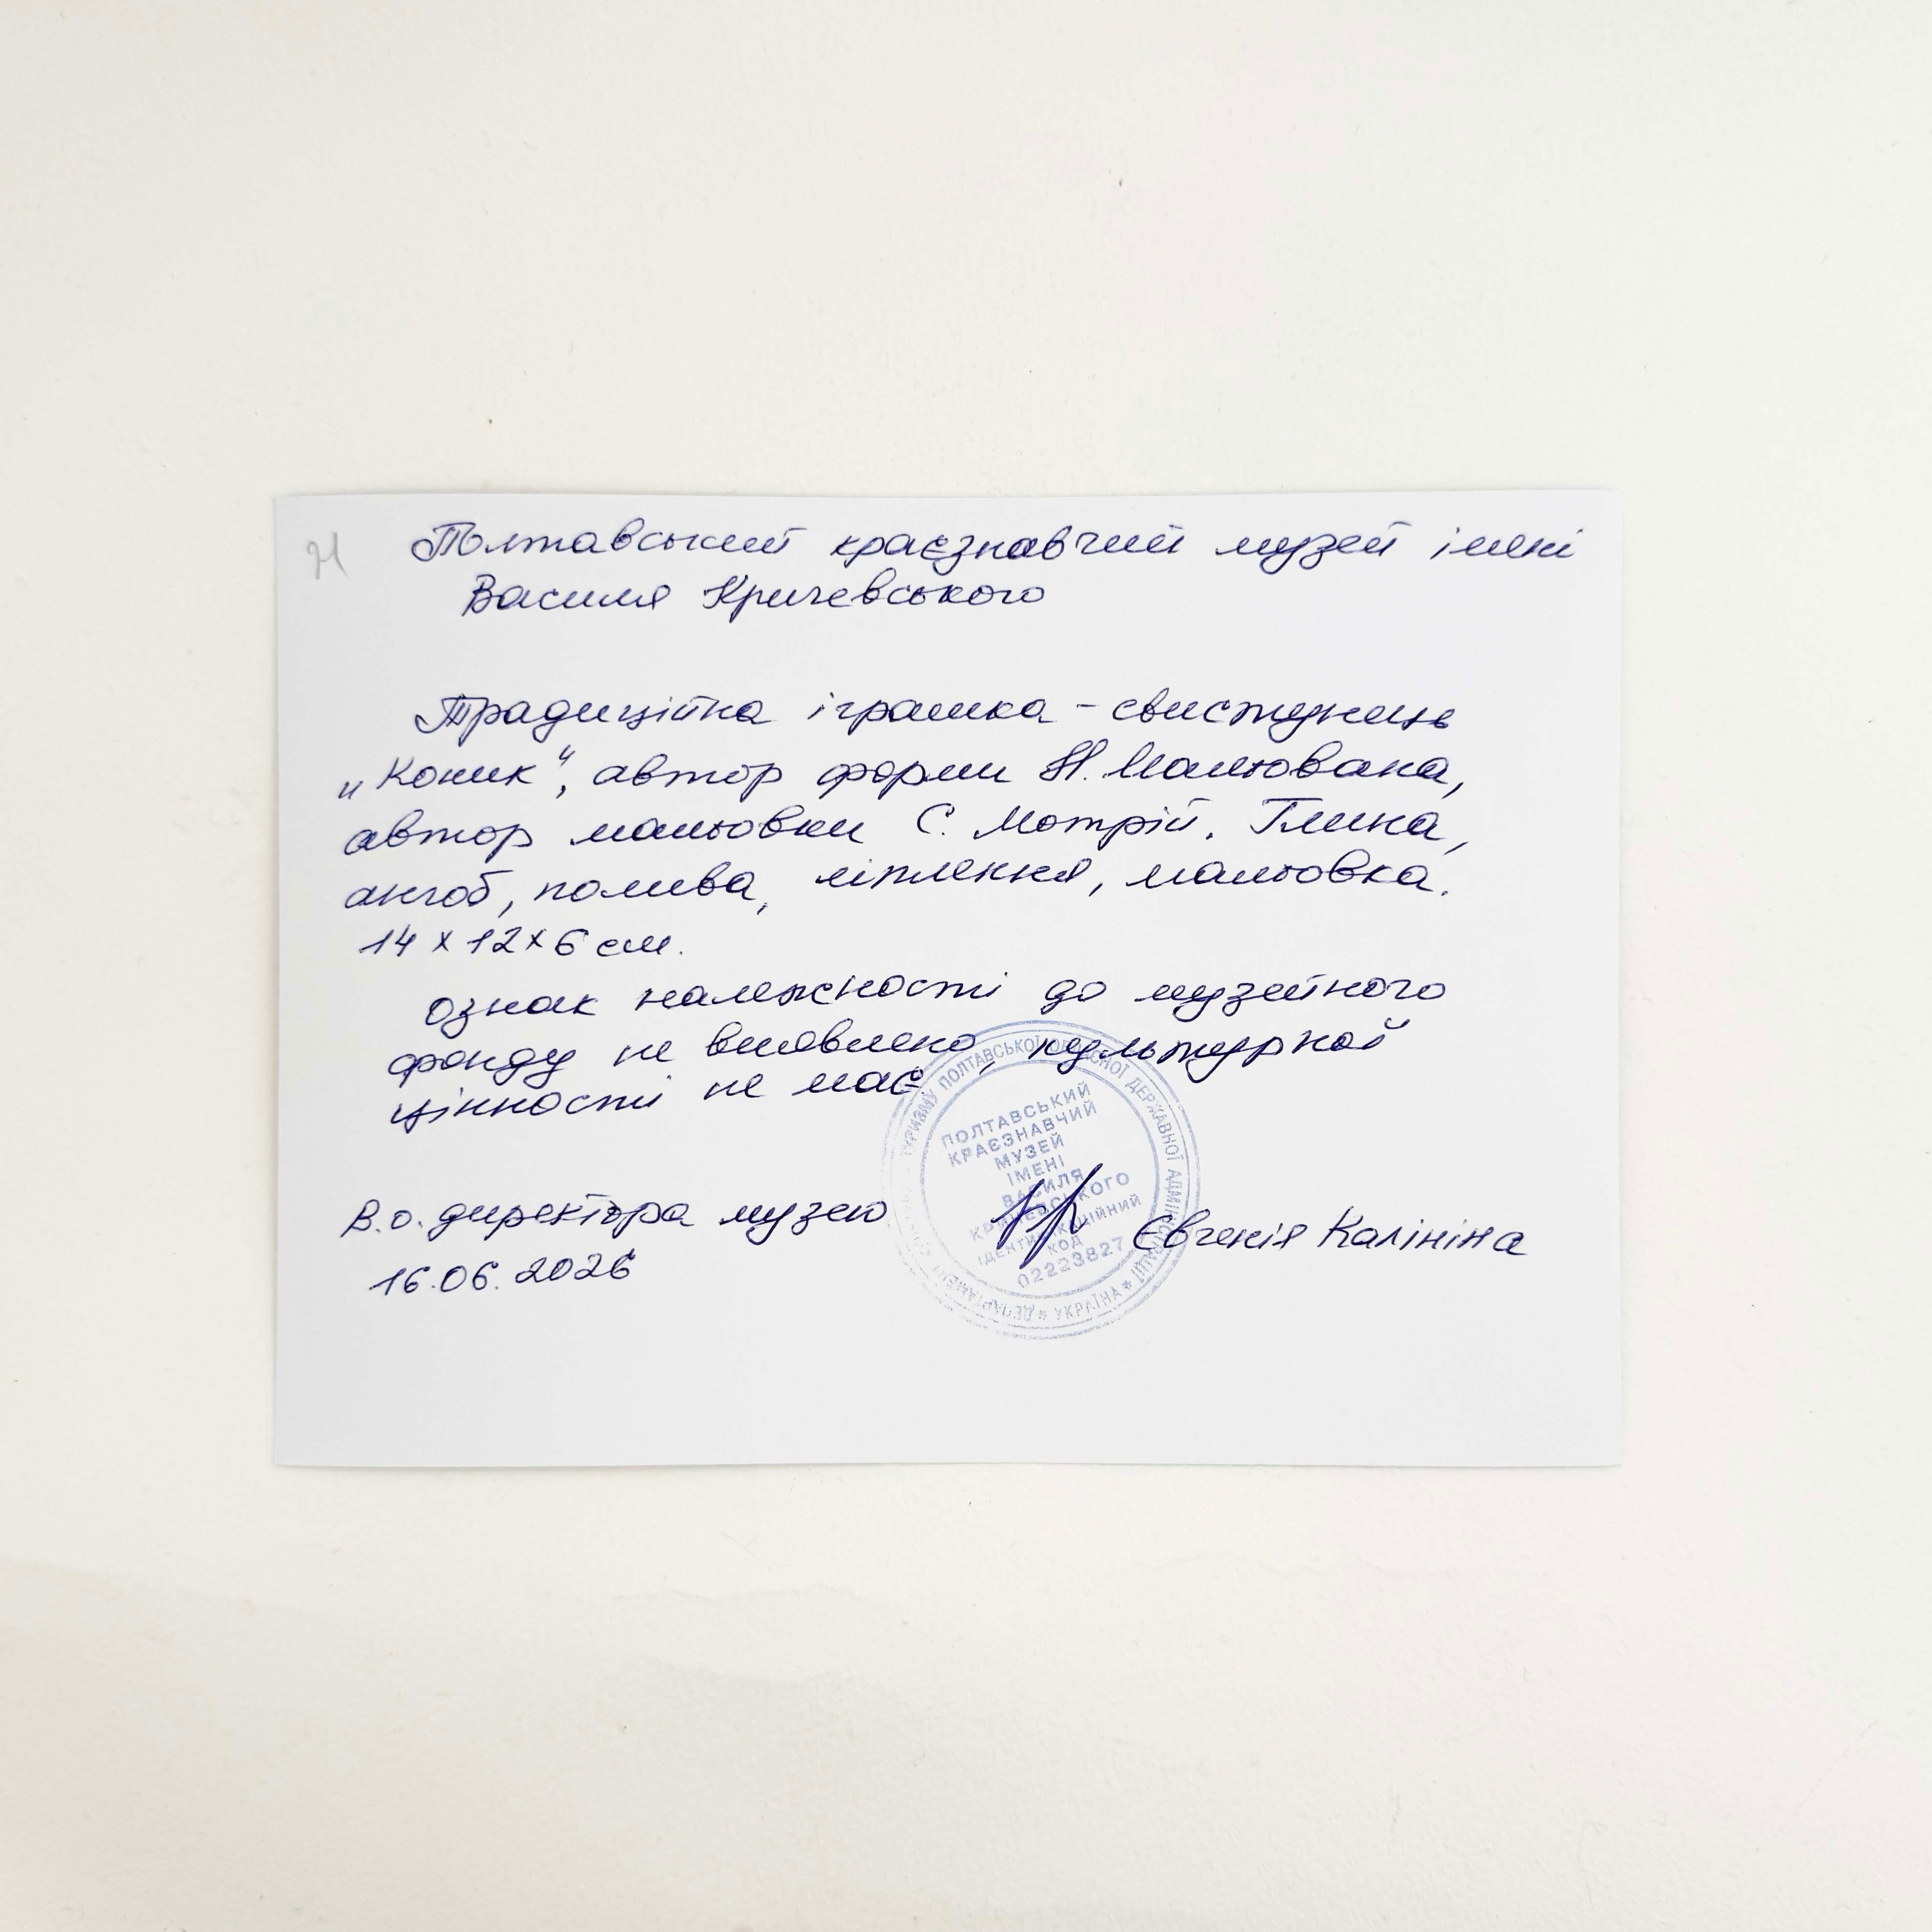 Полтавський краєзнавчий музей імені
Василя Кричевського
Традиційна іграшка - свистунець
„Коник", автор форми Н. Мальована,
автор мальовки С. Мотрій. Глина,
ангоб, полива, ліплення, мальовка.
14 х 12 х 6 см.
Ознак належності до музейного
фонду не виявлено, культурної
цінності не має.
В.о. директора музею
Євгенія Калініна
16.06.2026
ТУРИЗМУ ПОЛТАВСЬКОЇ ОБЛАСНОЇ ДЕРЖАВНОЇ АДМІНІСТРАЦІЇ * УКРАЇНА * ДЕПАРТАМЕНТ
ПОЛТАВСЬКИЙ
КРАЄЗНАВЧИЙ
МУЗЕЙ
ІМЕНІ
ВАСИЛЯ
КРИЧЕВСЬКОГО
ІДЕНТИФІКАЦІЙНИЙ
КОД
02223827